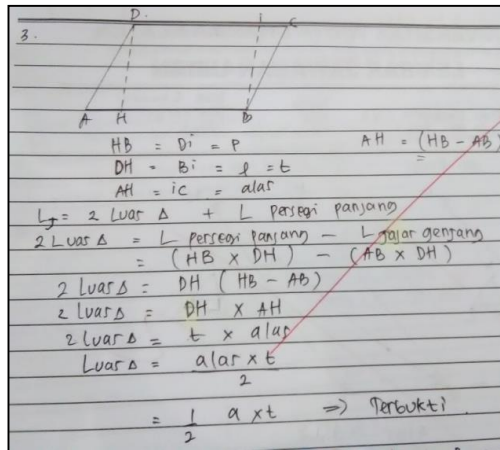 3.
D. i C
A H B
HB = Di = P AH = (HB - AB)
DH = Bi = l = t
AH = iC = alas
L = 2 Luas Δ + L persegi panjang
2 Luas Δ = L persegi panjang - L jajar genjang
= (HB x DH) - (AB x DH)
2 Luas Δ = DH (HB - AB)
2 Luas Δ = DH x AH
2 Luas Δ = t x alas
Luas Δ = alas x t / 2
= 1/2 a x t ⇒ Terbukti.